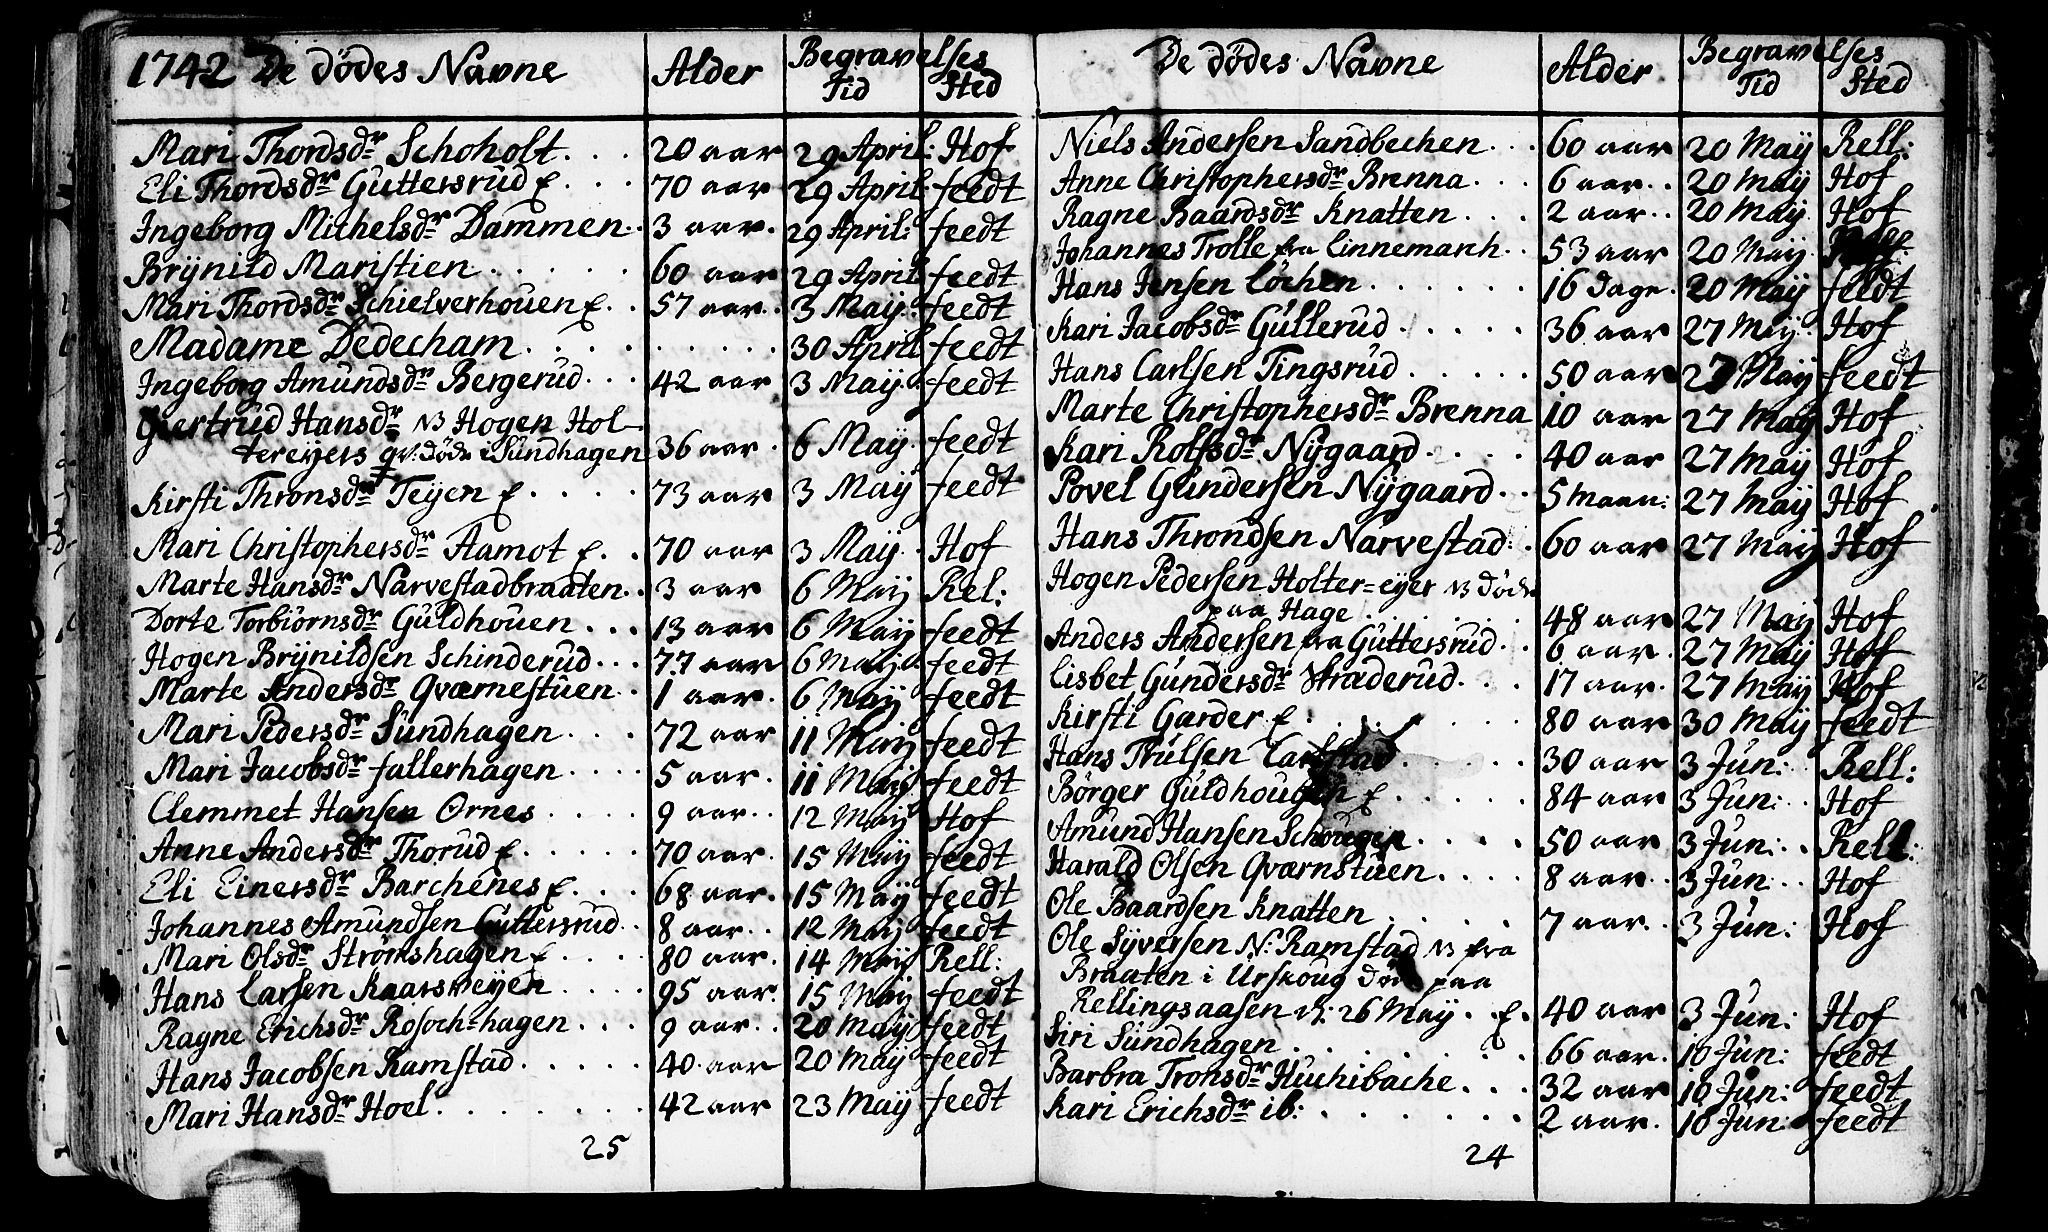 1742 De dödes Navne Alder Begravelses
Tid Sted
Mari Thordsdr Schoholt . . . 20 aar 29 April: Hof
Eli Thordsdr Guttersrud f . . . 70 aar 29 April feedt
Ingeborg Michelsdr Dammen . . 3 aar . 29 April: feedt
Brÿnild Maristien . . . . . . 60 aar 29 April feedt
Mari Thordsdr Schielverhouen f . . 57 aar . . 3 May . feedt
Madame Dedecham . . . . . . . . . . 30 April feedt
Ingeborg Amundsdr Bergerud . . . 42 aar 3 Maÿ feedt
Giertrud Hansdr NB Hogen Hol-
tereyers qv: döde i Sundhagen 36 aar . 6 Maÿ . feedt
Kirsti Thronsdr Teÿen f . . . . 73 aar 3 Maÿ feedt
Mari Christophersdr Aamot f . . 70 aar 3 Maÿ . Hof
Marte Hansdr Narvestadbraaten . . 3 aar 6 Maÿ Rel:
Dorte Torbiörnsdr Guldhouen . . . 13 aar 6 Maÿ feedt
Hogen Brÿnildsen Schinderud . . . 77 aar 6 Maÿ feedt
Marte Andersdr Qværnestuen . . 1 aar . 6 Maÿ feedt
Mari Pedersdr Sundhagen . . . . 72 aar 11 Maÿ feedt
Mari Jacobsdr fallerhagen . . . . 5 aar . 11 Maÿ feedt
Clemmet Hansen Ornes . . . . 9 aar . . 12 Maÿ Hof
Anne Andersdr Thorud f . . . . . 70 aar . 15 Maÿ feedt
Eli Einersdr Barchenes f . . . 68 aar . 15 Maÿ feedt
Johannes Amundsen Guttersrud . . 8 aar . . 12 Maÿ feedt
Mari Olsdr Strömshagen f . . . . 80 aar . 14 Maÿ Rell:
Hans Larsen Kaarsveyen . . . . 95 aar . 15 Maÿ feedt
Ragne Erichsdr Rosoch-hagen . . . 9 aar . . 20 Maÿ feedt
Hans Jacobsen Ramstad . . . . . 40 aar 20 Maÿ feedt
Mari Hansdr Hoel . . . . . . . . 42 aar 23 Maÿ feedt
25
De dödes Navne Alder Begravelses
Tid Sted
Niels Andersen Sandbechen . . . 60 aar 20 Maÿ Rell:
Anne Christophersdr Brenna . . . 6 aar . . 20 Maÿ Hof
Ragne Baardsdr Knatten . . . 2 aar . . 20 Maÿ Hof
Johannes Trolle fra Linnemarch . . 53 aar 20 Maÿ
Hans Jensen Löchen . . . . . . 16 dage . 20 Maÿ feedt
Kari Jacobsdr Gullerud . . . . . 36 aar 27 Maÿ Hof
Hans Carlsen Tingsrud . . . . . 50 aar 27 Maÿ feedt
Marte Christophersdr Brenna 10 aar 27 Maÿ Hof
Kari Rolfsdr Nÿgaard . . . . 40 aar 27 Maÿ Hof
Povel Gundersen Nÿgaard . . 5 maan: 27 Maÿ Hof
Hans Throndsen Narvestad . . 60 aar 27 Maÿ Hof
Hogen Pedersen Holter=eyer NB döde
paa Hage . . . . . . 48 aar 27 Maÿ Hof
Anders Andersen fra Guttersrud . . 6 aar . 27 Maÿ Hof
Lisbet Gundersdr Straderud . . . 17 aar . 27 Maÿ Hof
Kirsti Garder f . . . . . . . . 80 aar 30 Maÿ feedt
Hans Trulsen Carlstad . . . . . 30 aar 3 Jun: Rell:
Börger Guldhougen f . . . . . . 84 aar 3 Jun: . Hof
Amund Hansen Schougen . . . . 50 aar 3 Jun: . Rell:
Harald Olsen Qværnstuen . . . . 8 aar . . 3 Jun: . Hof
Ole Baardsen Knatten . . . . . 7 aar . . 3 Jun: Hof
Ole Sÿversen N: Ramstad NB fra
Braaten i Urskoug döde paa
Rellingsaasen d: 26 May . f . 40 aar 3 Jun: Hof
Siri Sundhagen . . . . . . . . 66 aar . 10 Jun: feedt
Barbra Tronsdr Huchibache . . . 32 aar 10 Jun: feedt
Kari Erichsdr ib: . . . . . . . 2 aar . 10 Jun: feedt
24